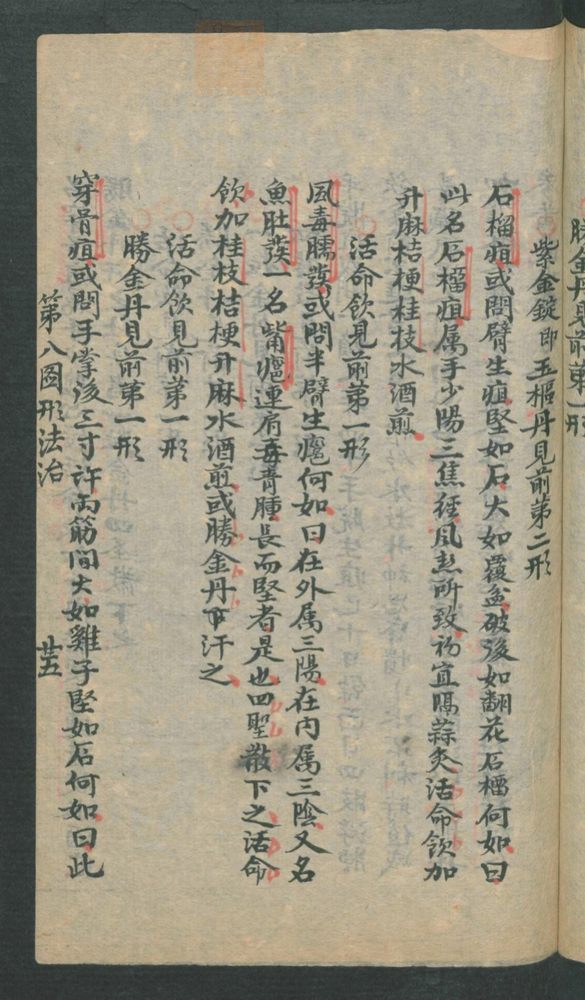 勝金丹見前第一形
紫金錠即玉樞丹見前第二形
石榴疽或問臂生疽堅如石大如覆盆破後如翻花石榴何如曰
此名石榴疽属手少陽三焦經風熱所致初宜隔蒜灸活命飲加
升麻桔梗桂枝水酒煎
活命飲見前第一形
風毒臑發或問半臂生癰何如曰在外属三陽在内属三陰又名
魚肚發一名藋癰連肩毒青腫長而堅者是也四聖散下之活命
飲加桂枝桔梗升麻水酒煎或勝金丹下汗之
活命飲見前第一形
勝金丹見前第一形
穿骨疽或問手掌後三寸許兩筋間大如雞子堅如石何如曰此
第八圖形法治 廿五